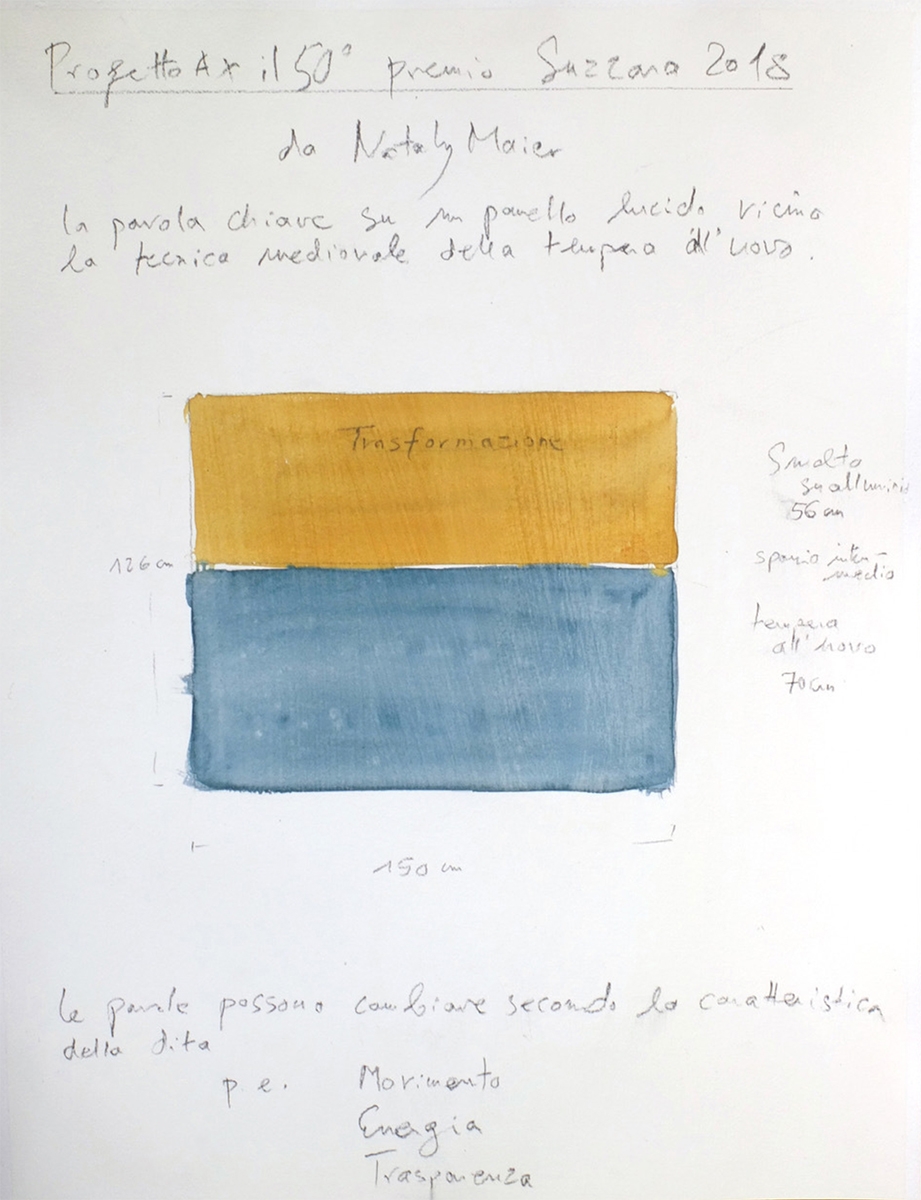 Progetto A x il 50° premio Suzzara 2018
da Nataly Maier
la parola chiave su un panello lucido vicino
la tecnica mediovale della tempera all'uovo.
Trasformazione
Smalto
su alluminio
56 cm
126 cm
spazio inter-
medio
tempera
all'uovo
70 cm
150 cm
le parole possono cambiare secondo la caratteristica
della dita
p.e. Movimento
Energia
Trasparenza